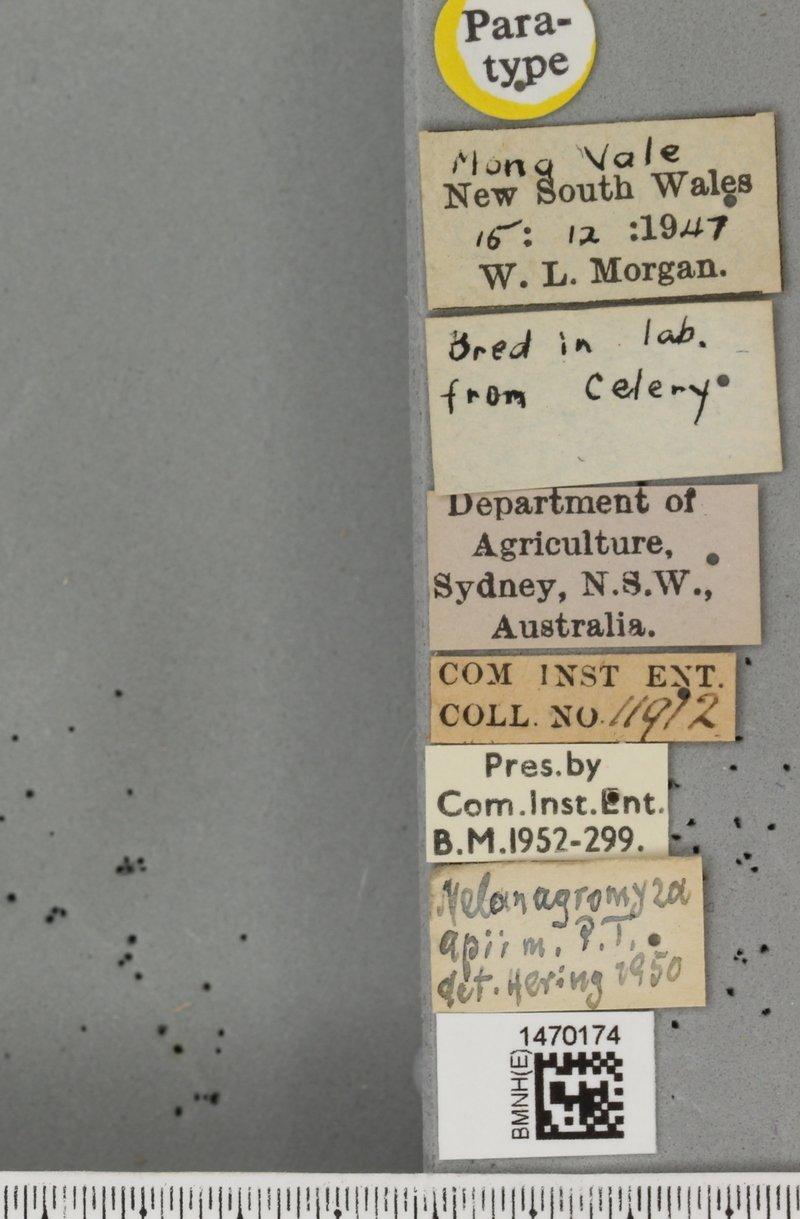 Para-
type
Mona Vale
New South Wales
15: 12 :1947
W. L. Morgan.
Bred in lab.
from Celery
Department of
Agriculture,
Sydney, N.S.W.,
Australia.
COM INST ENT.
COLL. NO. 11912
Pres.by
Com.Inst.Ent.
B.M.1952-299.
Melanagromyza
apii m. P.T.
det. Hering 1950
1470174
BMNH(E)